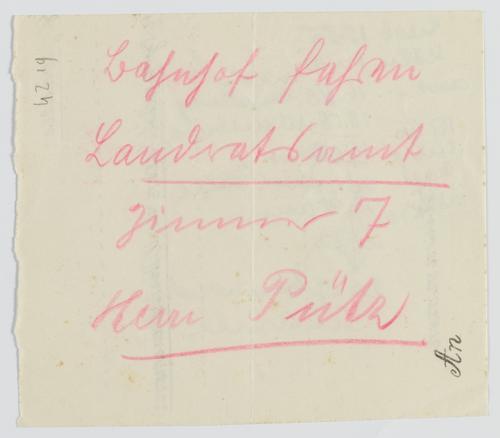 Bahnhof fahren
Landratsamt
Zimmer 7
Herrn Pütz
An
4219